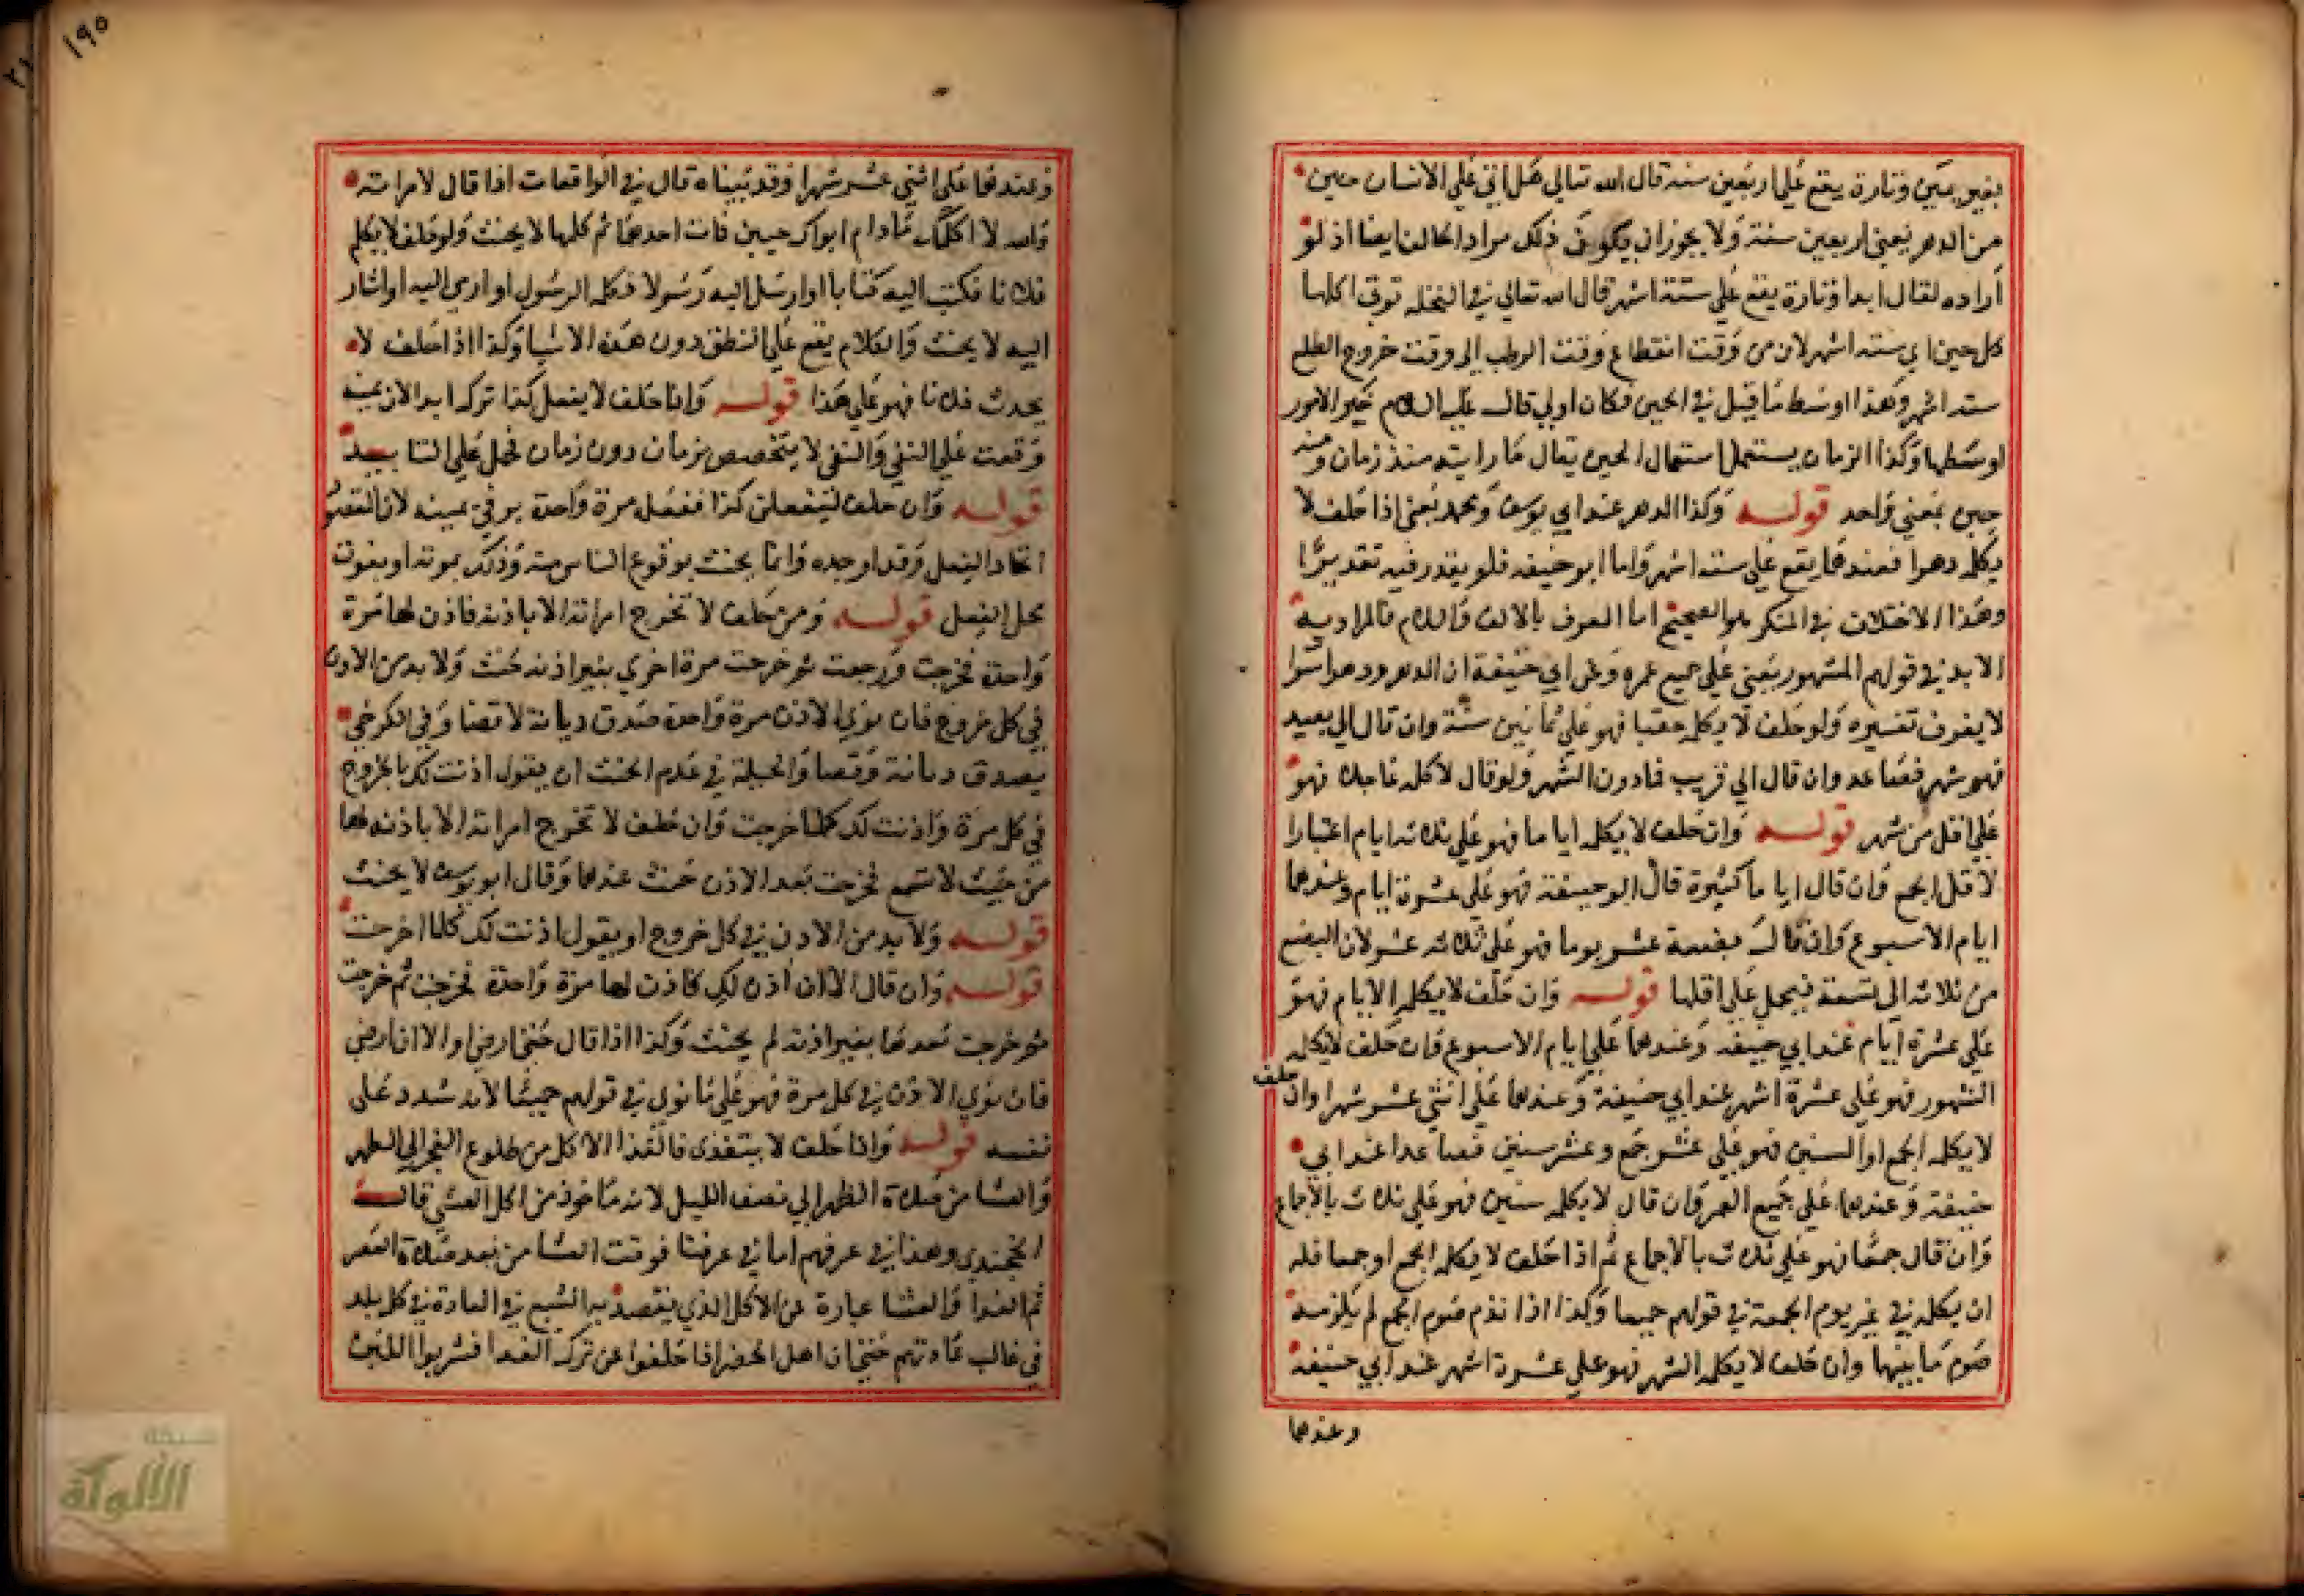 بغير يمين وتارة يقع على اربعين سنة قال الله تعالى هل اتى على الانسان حين
من الدهر يعني اربعين سنة ولا يجوز ان يكون ذلك مراد الحالف ايضا اذ لو
اراده لقال ابدا وتارة يقع على ستة اشهر قال الله تعالى في النخلة توتي اكلها
كل حين اي ستة اشهر لان من وقت انقطاع وقت الرطب الى وقت خروج الطلع
ستة اشهر وهذا اوسط ما قيل في الحين فكان اولى قال عليه السلام خير الامور
اوسطها وكذا الزمان يستعمل استعمال الحين يقال ما رايته منذ زمان ومنذ
حين بمعنى واحد قوله وكذا الدهر عند ابي يوسف ومحمد يعني اذا حلف لا
يكلمه دهرا فعندهما يقع على ستة اشهر واما ابو حنيفة فلم يقدر فيه تقديرا
وهذا الاختلاف في المنكر هو الصحيح اما المعرف بالالف واللام فالمراد به
الابد في قولهم المشهور يعني على جميع عمره وعن ابي حنيفة ان الدهر ودهرا سوا
لا يعرف تفسيره ولو حلف لا يكلمه حقبا فهو على ثمانين سنة وان قال الى بعيد
فهو شهر فصاعدا وان قال الى قريب فما دون الشهر ولو قال لاكلمه عاجلا فهو
على اقل من شهر قوله وان حلف لا يكلمه اياما فهو على ثلاثة ايام اعتبارا
لاقل الجمع وان قال اياما كثيرة قال ابو حنيفة فهو على عشرة ايام وعندهما
ايام الاسبوع وان قال بضعة عشر يوما فهو على ثلاثة عشر لان البضع
من ثلاثة الى تسعة فيحمل على اقلها قوله وان حلف لا يكلمه الايام فهو
على عشرة ايام عند ابي حنيفة وعندهما على ايام الاسبوع فان حلف لا يكلمه
الشهور فهو على عشرة اشهر عند ابي حنيفة وعندهما على اثني عشر شهرا وان حلف
لا يكلمه الجمع او السنين فهو على عشر جمع وعشر سنين فصاعدا عند ابي
حنيفة وعندهما على جميع العمر وان قال لا يكلمه سنين فهو على ثلاث بالاجماع
وان قال جمعا فهو على ثلاث بالاجماع ثم اذا حلف لا يكلمه الجمع او جمعا فله
ان يكلمه في غير يوم الجمعة في قولهم جميعا وكذا اذا نذر صوم الجمع لم يلزمه
صوم ما بينها وان حلف لا يكلمه الشهر فهو على عشرة اشهر عند ابي حنيفة
وعندهما
١٩٥
وعندهما على اثني عشر شهرا وقد بيناه قال في الواقعات اذا قال لامراته
والله لا اكلمك ما دام ابواك حيين فمات احدهما ثم كلمها لا يحنث ولو حلف لا يكلم
فلانا فكتب اليه كتابا او ارسل اليه رسولا فكلمه الرسول او اومى اليه او اشار
اليه لا يحنث والكلام يقع على النطق دون هذه الاشيا وكذا اذا حلف لا
يحدث فلانا فهو على هذا قوله واذا حلف لا يفعل كذا تركه ابدا لان يمينه
وقعت على النفي والنفي لا يتخصص بزمان دون زمان فحمل على التابيد
قوله وان حلف ليفعلن كذا ففعله مرة واحدة بر في يمينه لان المقصود
اتحاد الفعل وقد اوجده وانما يحنث بوقوع الياس منه وذلك بموته او بفوت
محل الفعل قوله ومن حلف لا تخرج امراته الا باذنه فاذن لها مرة
واحدة فخرجت ورجعت ثم خرجت مرة اخرى بغير اذنه حنث ولا بد من الاذن
في كل خروج فان نوى الاذن مرة واحدة صدق ديانة لا قضا وفي الكرخي
يصدق ديانة وقضا والحيلة في عدم الحنث ان يقول اذنت لك بالخروج
في كل مرة او اذنت لك كلما خرجت وان حلف لا تخرج امراته الا باذنه لها
من حيث لا تسمع فخرجت بعد الاذن حنث عندهما وقال ابو يوسف لا يحنث
قوله ولا بد من الاذن في كل خروج او يقول اذنت لك كلما خرجت
قوله وان قال الا ان آذن لك فاذن لها مرة واحدة فخرجت ثم خرجت
ثم خرجت بعدها بغير اذنه لم يحنث وكذا اذا قال حتى ارضى او الا ان ارضى
فان نوى الاذن في كل مرة فهو على ما نوى في قولهم جميعا لانه شدد على
نفسه قوله واذا حلف لا يتغدى فالغدا الاكل من طلوع الفجر الى الظهر
والعشا من صلاة الظهر الى نصف الليل لانه ماخوذ من اكل العشي قال
الخجندي وهذا في عرفهم اما في عرفنا فوقت العشا من بعد صلاة العصر
ثم الغدا والعشا عبارة عن الاكل الذي يقصد به الشبع في العادة في كل بلد
في غالب عادتهم حتى ان اهل الحضر اذا حلفوا عن ترك الغدا فشربوا اللبن
شبكة
الألوكة